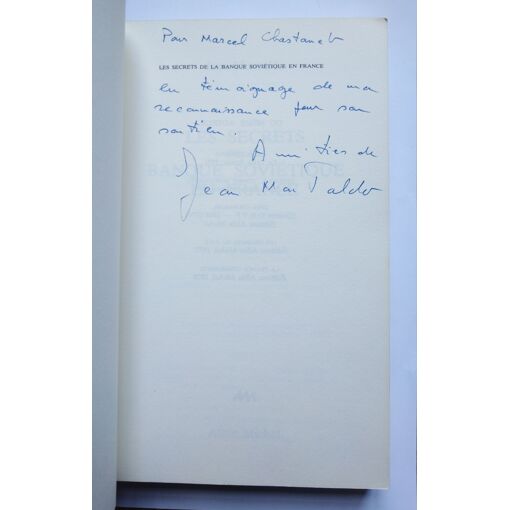 Pour Marcel Chastanet
LES SECRETS DE LA BANQUE SOVIÉTIQUE EN FRANCE
en témoignage de ma
reconnaissance pour son
soutien.
Amitiés de
Jean
LES SECRETS
BANQUE SOVIÉTIQUE